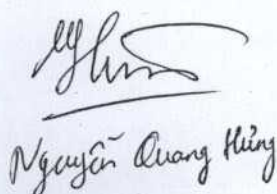 Nguyễn Quang Hưng